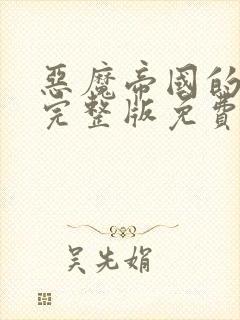 惡魔帝國的
完整版免費
吴先娟